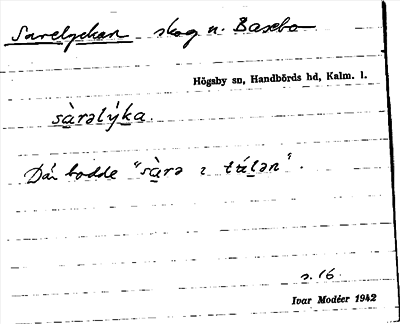 Sarelyckan skog n. Baxebo
Högsby sn, Handbörds hd, Kalm. l.
sàrəlýka.
Där bodde "sàrə ɩ tǘlən".
s. 16.
Ivar Modéer 1942